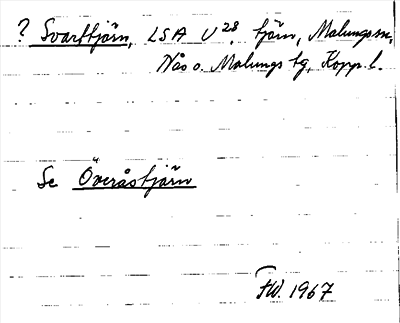 ? Svarttjärn, LSA U 28. tjärn, Malungs sn,
Nås o. Malungs tg, Kopp. l.
Se Överåstjärn
FW. 1967